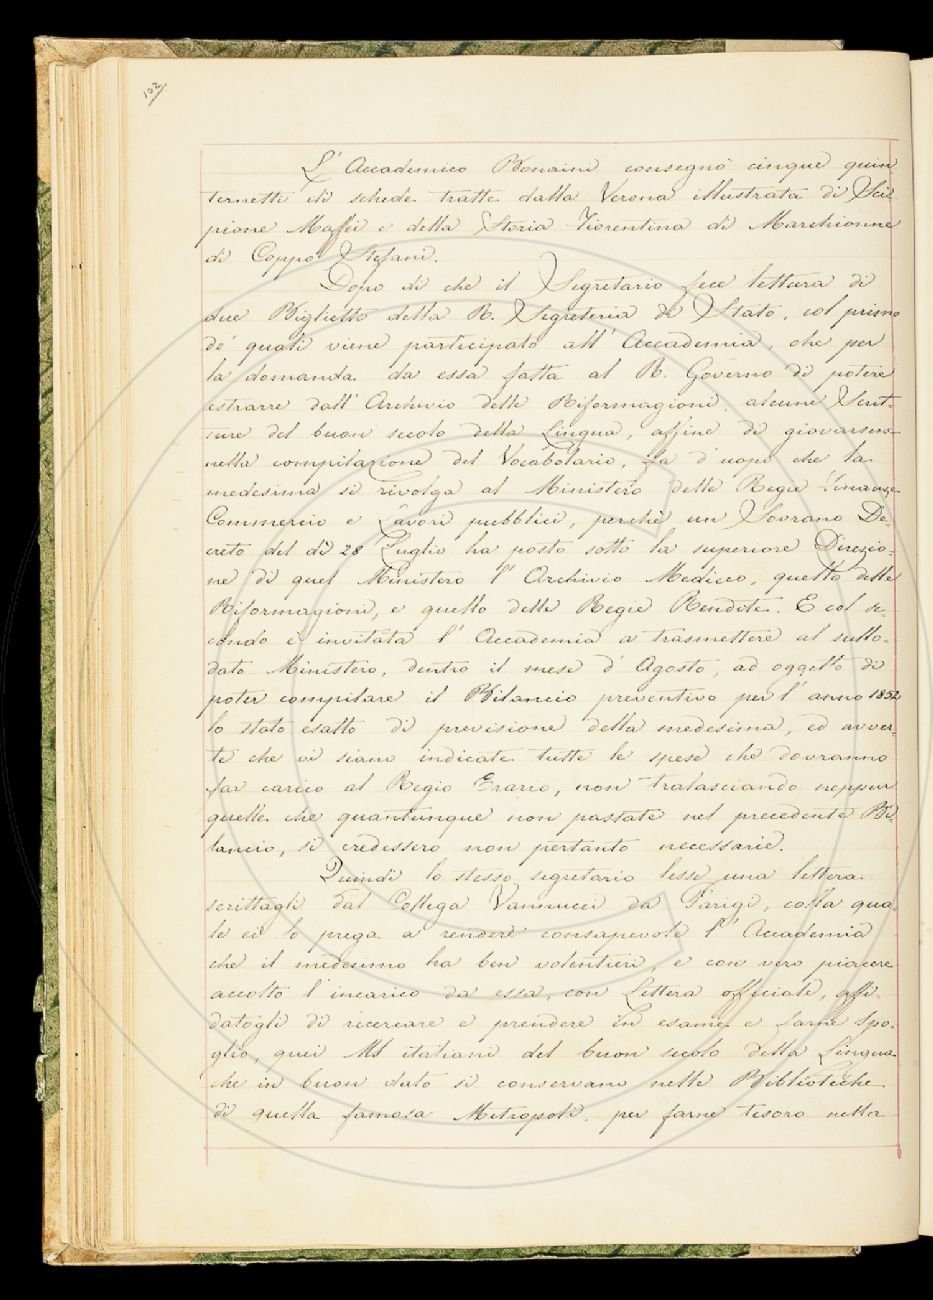 102
L'Accademico Bonaini consegnò cinque quin
ternetti di schede tratte dalla Verona illustrata di Sci-
pione Maffei e della Storia Fiorentina di Marchionne
di Coppo Stefani.
Dopo di che il Segretario fece lettura di
due Biglietti della R. Segreteria di Stato, col primo
de' quali viene participato all'Accademia, che per
la domanda da essa fatta al R. Governo di potere
estrarre dall'Archivio delle Riformagioni, alcune Scrit-
ture del buon secolo della Lingua, affine di giovarsene
nella compilazione del Vocabolario, fa d'uopo che la
medesima si rivolga al Ministero delle Regie Finanze
Commercio e Lavori pubblici, perchè un Sovrano De-
creto del dì 28 Luglio ha posto sotto la superiore Direzio-
ne di quel Ministero l'Archivio Mediceo, quello delle
Riformagioni, e quello delle Regie Rendite. E col se-
condo è invitata l'Accademia a trasmettere al sullo-
dato Ministero, dentro il mese d'Agosto, ad oggetto di
poter compilare il Bilancio preventivo per l'anno 1852
lo stato esatto di previsione della medesima, ed avver-
te che vi siano indicate tutte le spese che dovranno
far carico al Regio Erario, non tralasciando neppur
quelle che quantunque non passate nel precedente Bi-
lancio, si credessero non pertanto necessarie.
Quindi lo stesso segretario lesse una lettera
scrittagli dal Collega Vannucci da Parigi, colla qua-
le ei lo prega a rendere consapevole l'Accademia
che il medesimo ha ben volentieri, e con vero piacere
accolto l'incarico da essa, con Lettera officiale, affi-
datogli di ricercare e prendere in esame e farne spo-
glio, quei MS italiani del buon secolo della Lingua
che in buon dato si conservano nelle Biblioteche
di quella famosa Metropoli, per farne tesoro nella